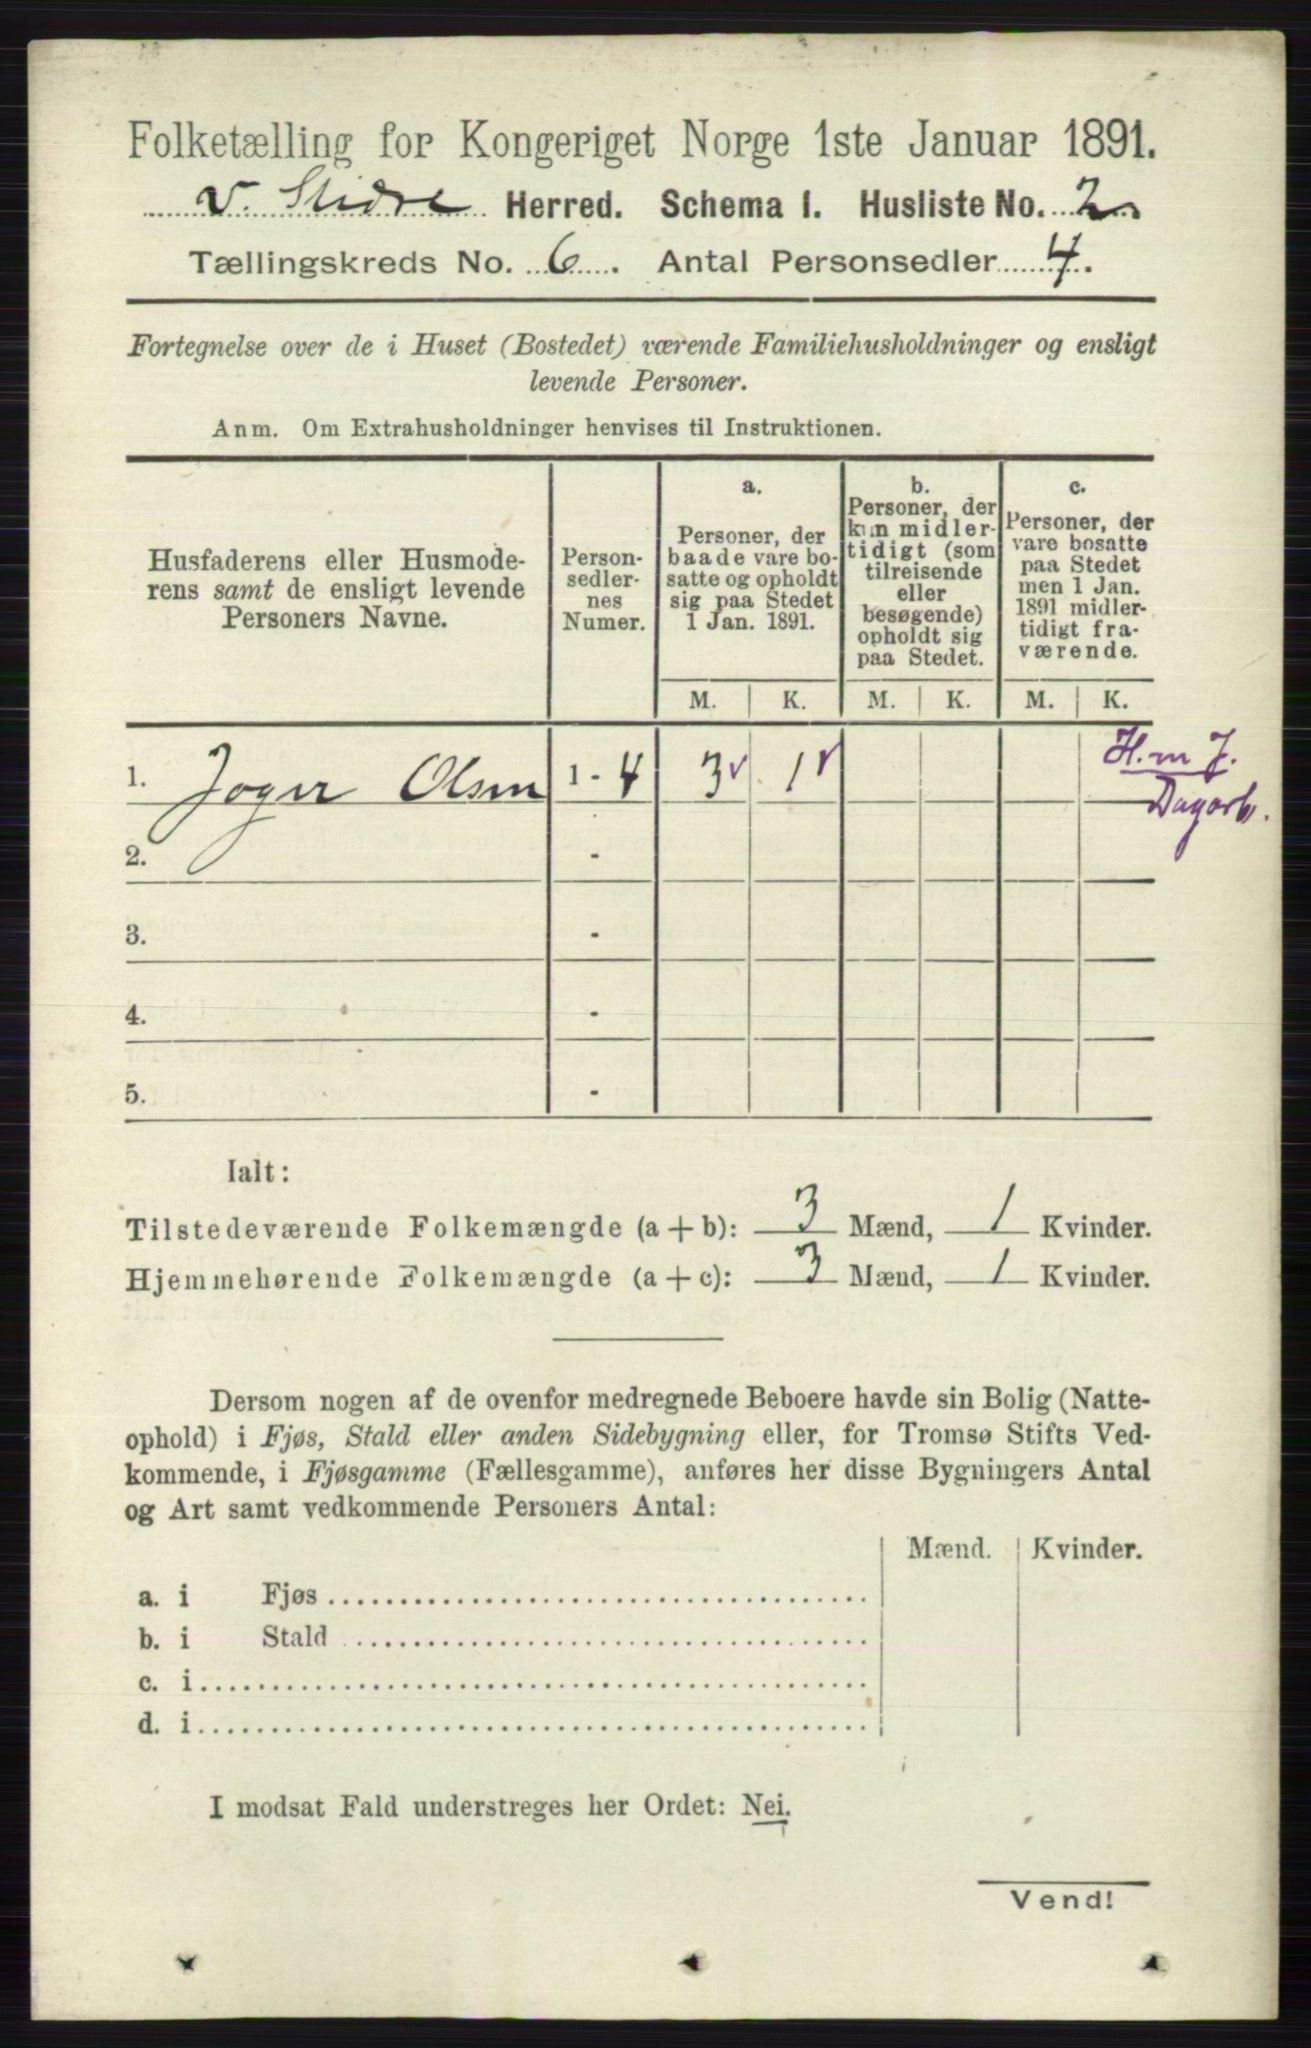 Folketælling for Kongeriget Norge 1ste Januar 1891.
V. Slidre Herred. Schema I. Husliste No. 2
Tællingskreds No. 6. Antal Personsedler 4.
Fortegnelse over de i Huset (Bostedet) værende Familiehusholdninger og ensligt
levende Personer.
Anm. Om Extrahusholdninger henvises til Instruktionen.
Husfaderens eller Husmode-
rens samt de ensligt levende
Personers Navne.
Person-
sedler-
nes
Numer.
a.
Personer, der
baade vare bo-
satte og opholdt
sig paa Stedet
1 Jan. 1891.
b.
Personer, der
kun midler-
tidigt (som
tilreisende
eller
besøgende)
opholdt sig
paa Stedet.
c.
Personer, der
vare bosatte
paa Stedet
men 1 Jan.
1891 midler-
tidigt fra-
værende.
M. K. M. K. M. K.
1. Joger Olsen 1 - 4 3 1
H. m J.
Dagarb.
2. -
3. -
4. -
5. -
Ialt:
Tilstedeværende Folkemængde (a + b): 3 Mænd, 1 Kvinder.
Hjemmehørende Folkemængde (a + c): 3 Mænd, 1 Kvinder.
Dersom nogen af de ovenfor medregnede Beboere havde sin Bolig (Natte-
ophold) i Fjøs, Stald eller anden Sidebygning eller, for Tromsø Stifts Ved-
kommende, i Fjøsgamme (Fællesgamme), anføres her disse Bygningers Antal
og Art samt vedkommende Personers Antal:
Mænd. Kvinder.
a. i Fjøs
b. i Stald
c. i
d. i
I modsat Fald understreges her Ordet: Nei.
Vend!